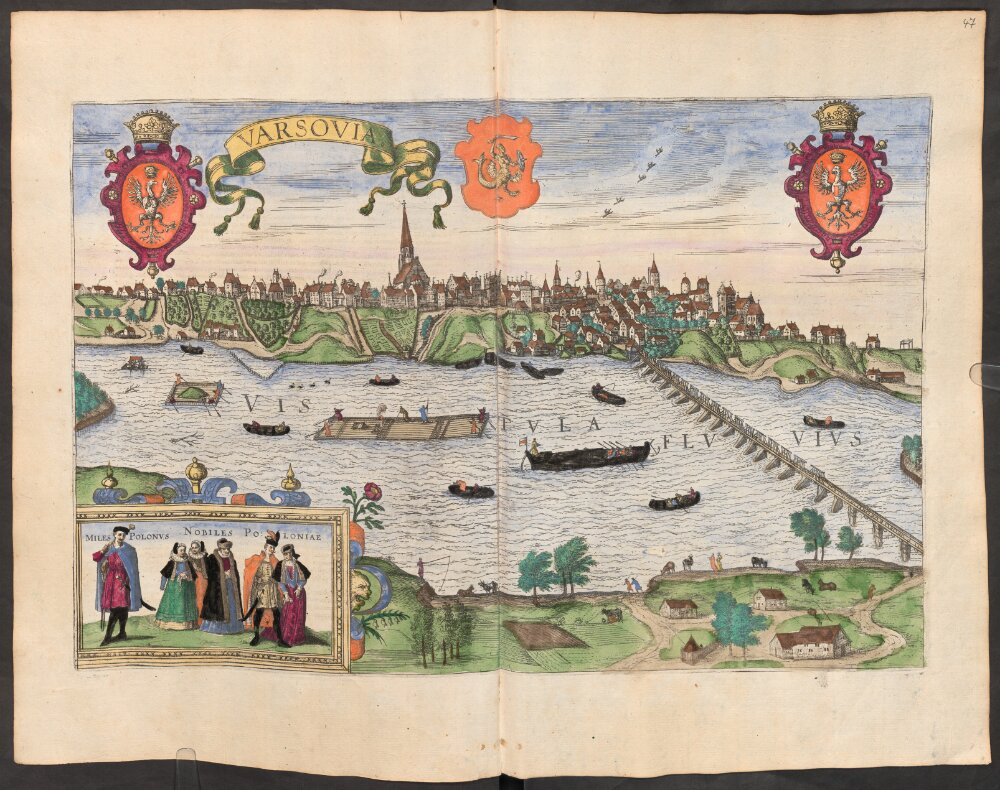 47
VARSOVIA
VISTULA FLUVIUS
MILES POLONVS NOBILES POLONIAE